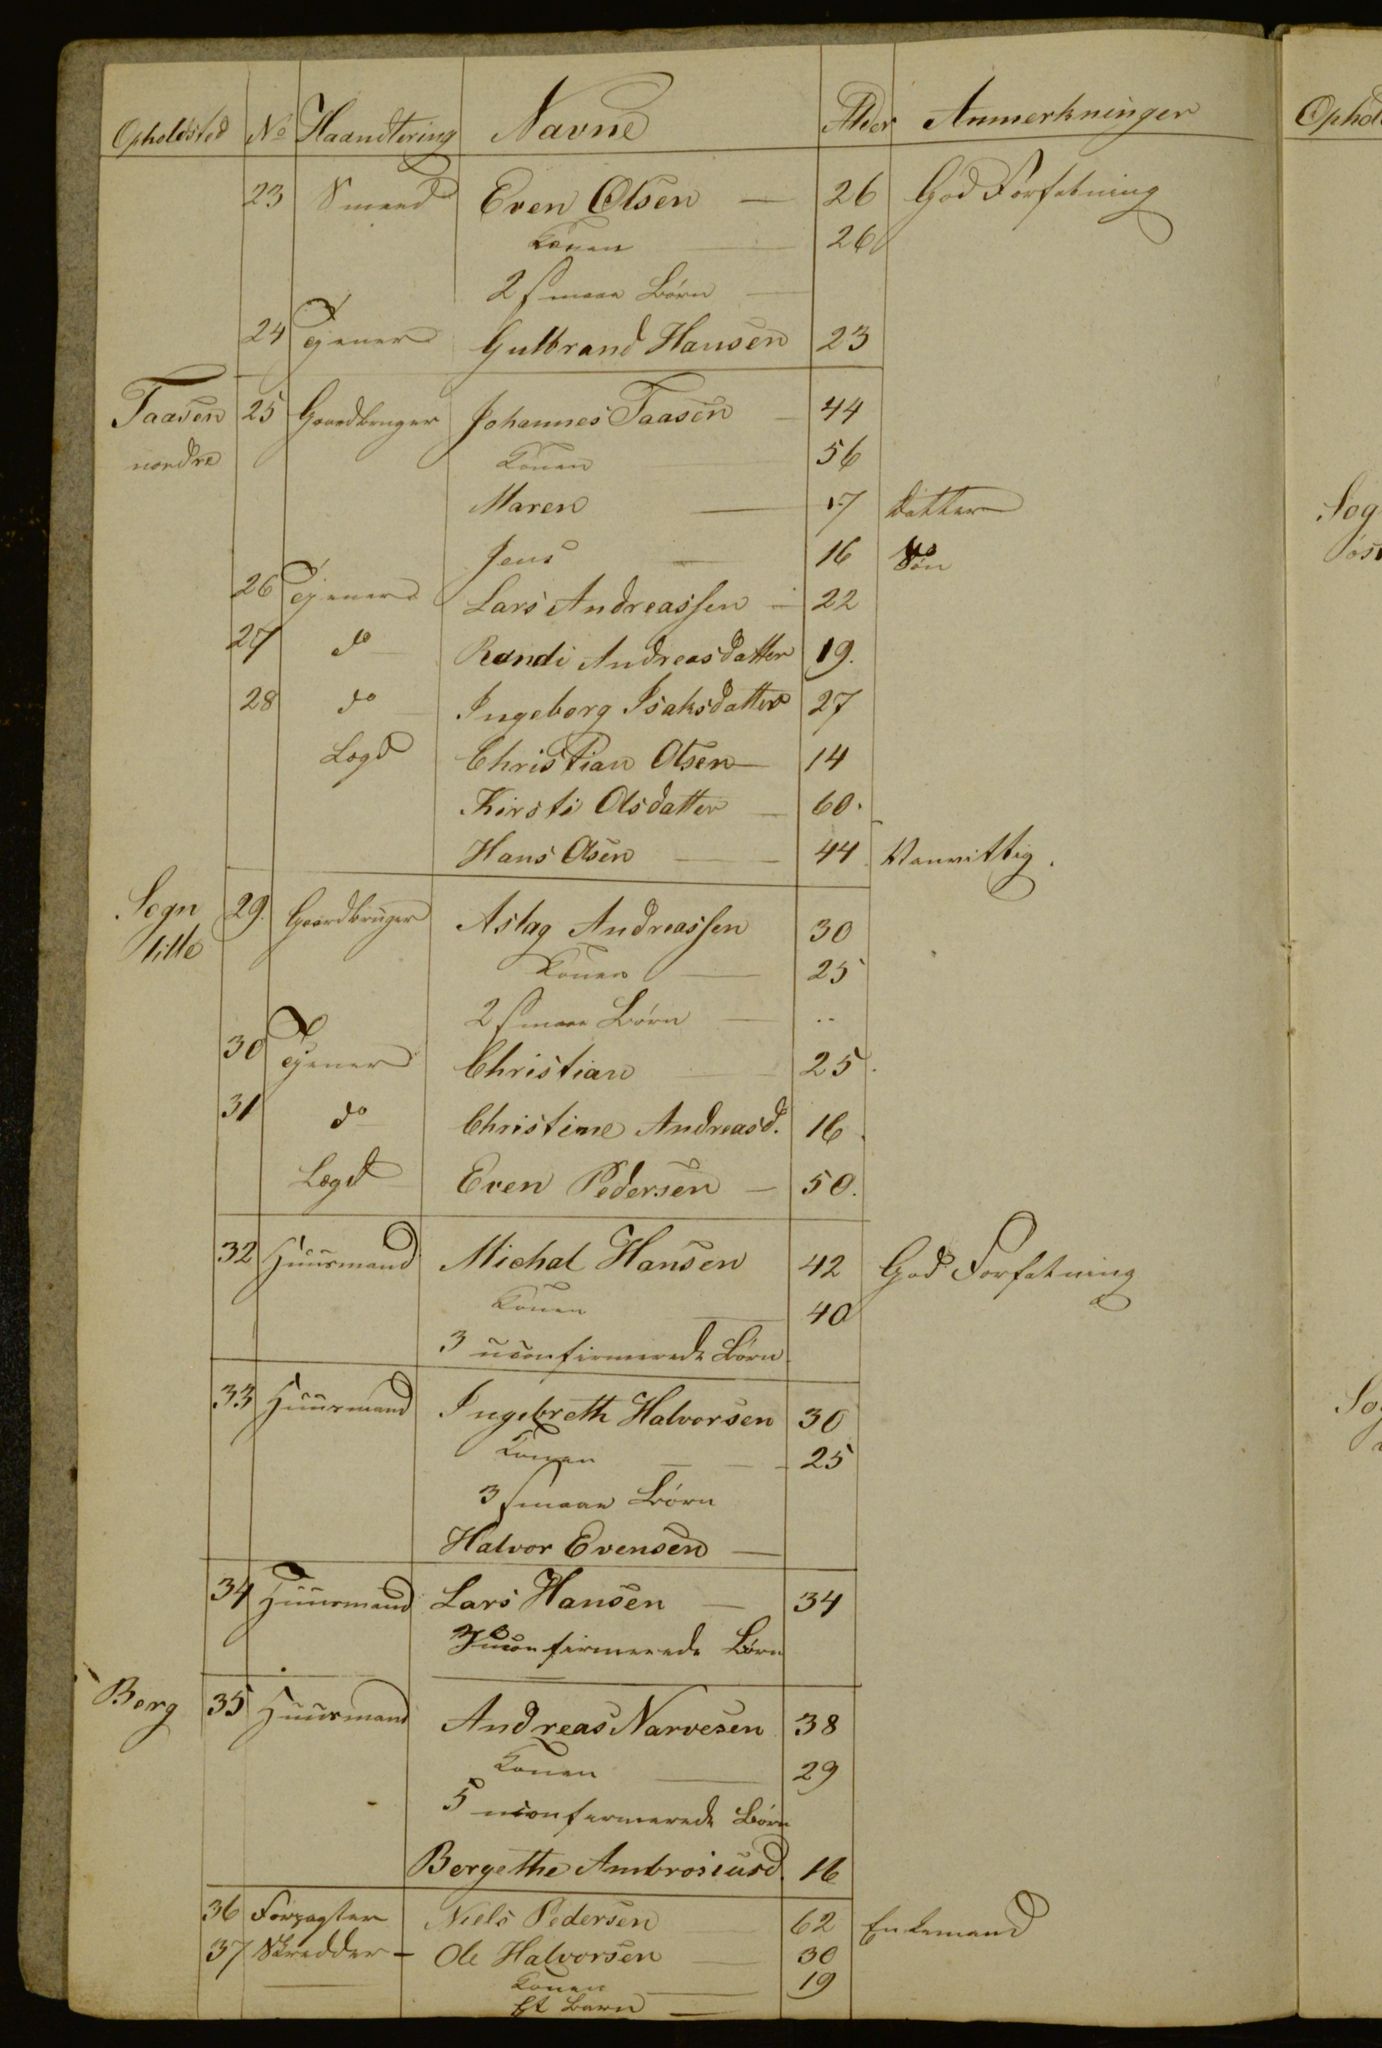 Opholdsted No Haandtering Navne Alder Anmerkninger
23 Smeed Even Olsen — 26 God Forfatning
Konen — 26
2 smaae Børn —
24 Tjener Gulbrand Hansen 23
Taasen 25 Gaardbruger Johannes Taasen — 44
nordre Konen — 56
Maren — 17 datter
Jens — 16 Søn
26 Tjener Lars Andreassen — 22
27 do Randi Andreasdatter 19.
28 do Ingeborg Isaksdatter 27
Lægd Christian Olsen — 14
Kirsti Olsdatter — 60.
Hans Olsen — 44 Vanvittig.
Sogn 29. Gaardbruger Aslag Andreassen 30
lille Konen — 25
2 smaae Børn — ..
30 Tjener Christian — 25.
31 do Christine Andreasd. 16.
Lægd Even Pedersen — 50.
32 Huusmand Michal Hansen 42 God Forfatning
Konen — 40
3 uconfirmerede Børn
33 Huusmand Ingebreth Halvorsen 30
Konen — 25
3 smaae Børn
Halvor Evensen —
34 Huusmand Lars Hansen — 34
uconfirmerede Børn
Berg 35 Huusmand Andreas Narvesen 38
Konen — 29
5 uconfirmerede Børn
Bergethe Ambrosiusd. 16
36 Forpagter Niels Pedersen 62 Enkemand
37 Skredder — Ole Halvorsen — 30
Konen — 19
Et Barn —
Ophol
Sog
øst
So